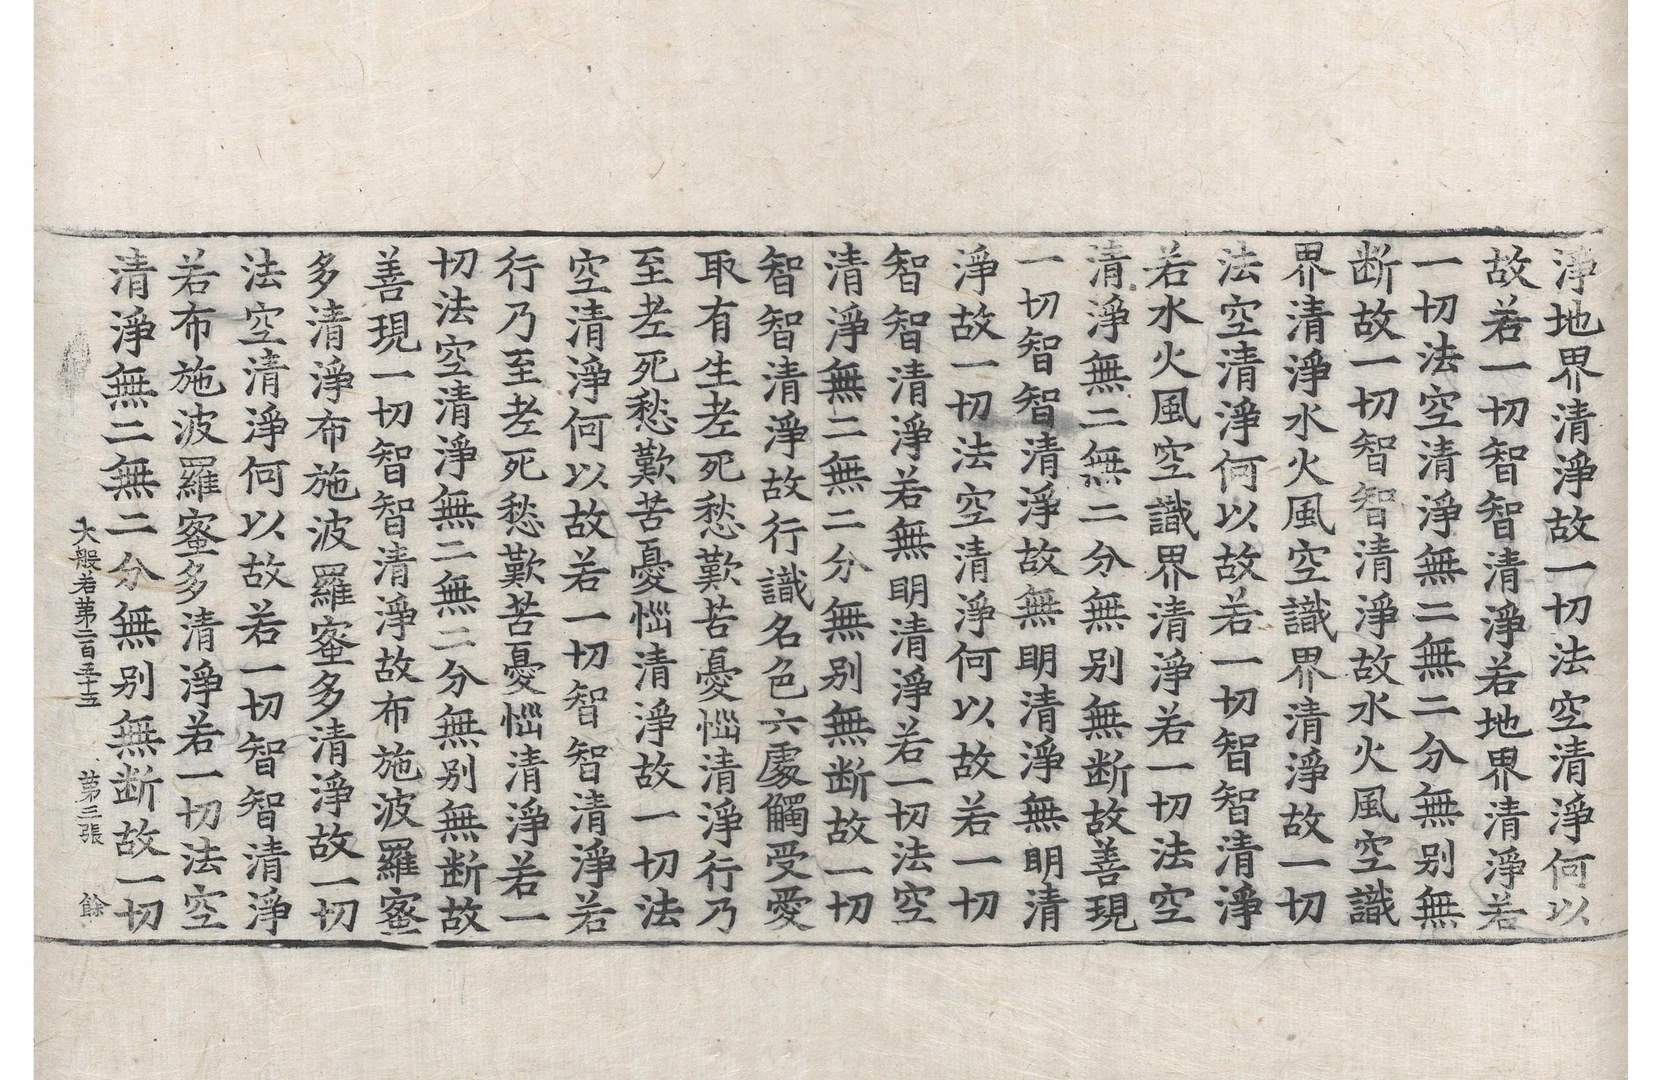 淨地界清淨故一切法空清淨何以
故若一切智智清淨若地界清淨若
一切法空清淨無二無二分無别無
断故一切智智清淨故水火風空識
界清淨水火風空識界清淨故一切
法空清淨何以故若一切智智清淨
若水火風空識界清淨若一切法空
清淨無二無二分無别無断故善現
一切智智清淨故無明清淨無明清
淨故一切法空清淨何以故若一切
智智清淨若無明清淨若一切法空
清淨無二無二分無别無断故一切
智智清淨故行識名色六處觸受愛
取有生老死愁歎苦憂惱清淨行乃
至老死愁歎苦憂惱清淨故一切法
空清淨何以故若一切智智清淨若
行乃至老死愁歎苦憂惱清淨若一
切法空清淨無二無二分無别無断故
善現一切智智清淨故布施波羅蜜
多清淨布施波羅蜜多清淨故一切
法空清淨何以故若一切智智清淨
若布施波羅蜜多清淨若一切法空
清淨無二無二分無别無断故一切
大般若第二百五十五 第三張 餘